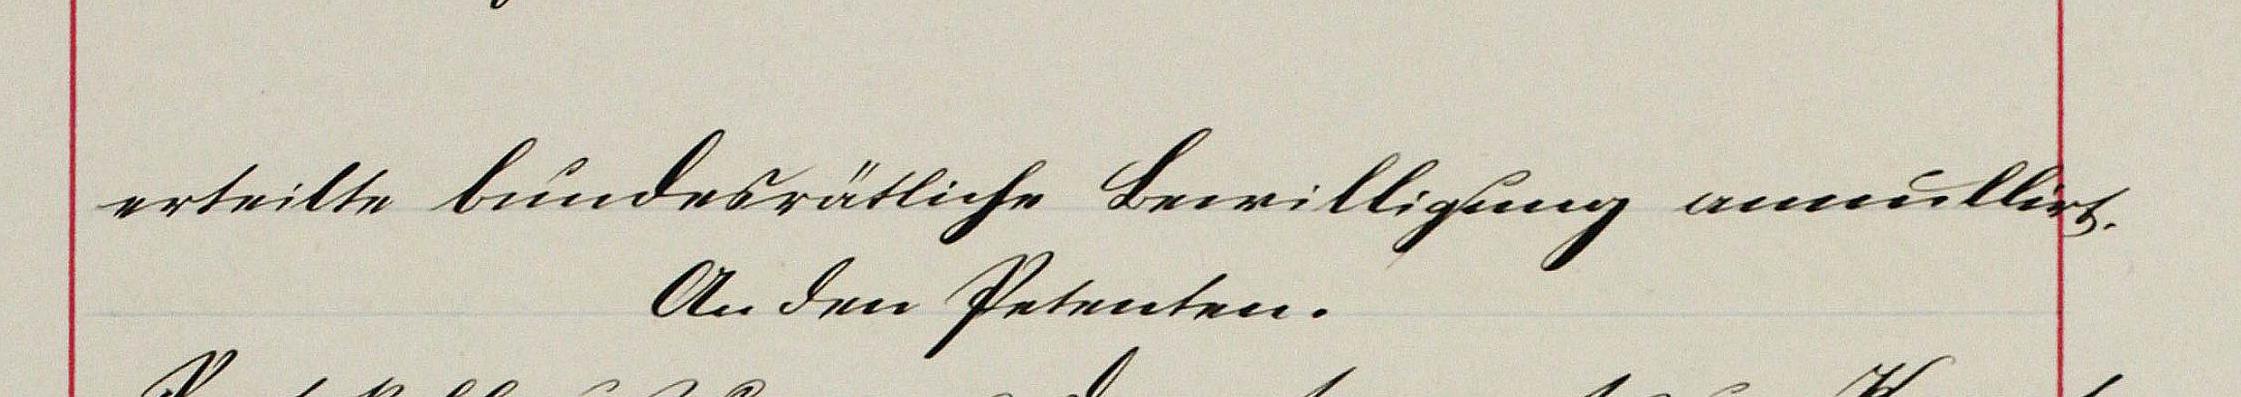 erteilte bundesrätliche Bewilligung annullirt.
An den Petenten.